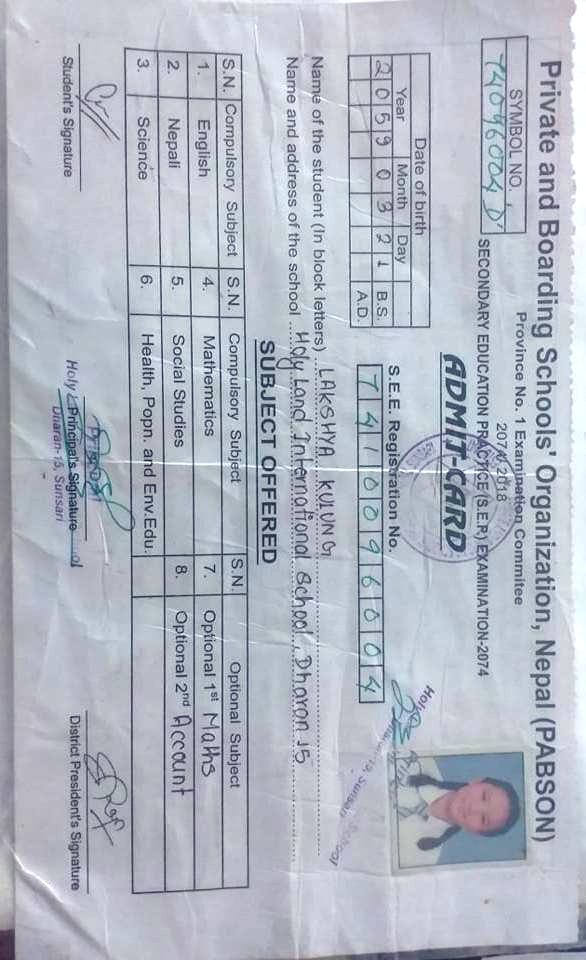 Private and Boarding Schools' Organization, Nepal (PABSON)
Province No. 1 Examination Commitee
2074/2018
SYMBOL NO.
74096004 'D'
SECONDARY EDUCATION PRACTICE (S.E.P.) EXAMINATION-2074
ADMIT-CARD
Date of birth
Year Month Day
2 0 5 9 0 3 2 1 B.S.
A.D.
S.E.E. Registration No.
7 4 1 0 0 9 6 0 0 4
Name of the student (In block letters) LAKSHYA KULUNG
Name and address of the school Holy Land International School, Dharan 15
SUBJECT OFFERED
S.N. Compulsory Subject S.N. Compulsory Subject S.N. Optional Subject
1. English 4. Mathematics 7. Optional 1st Maths
2. Nepali 5. Social Studies 8. Optional 2nd Account
3. Science 6. Health, Popn. and Env.Edu.
Student's Signature
Principal's Signature
Dharan-15, Sunsari
District President's Signature